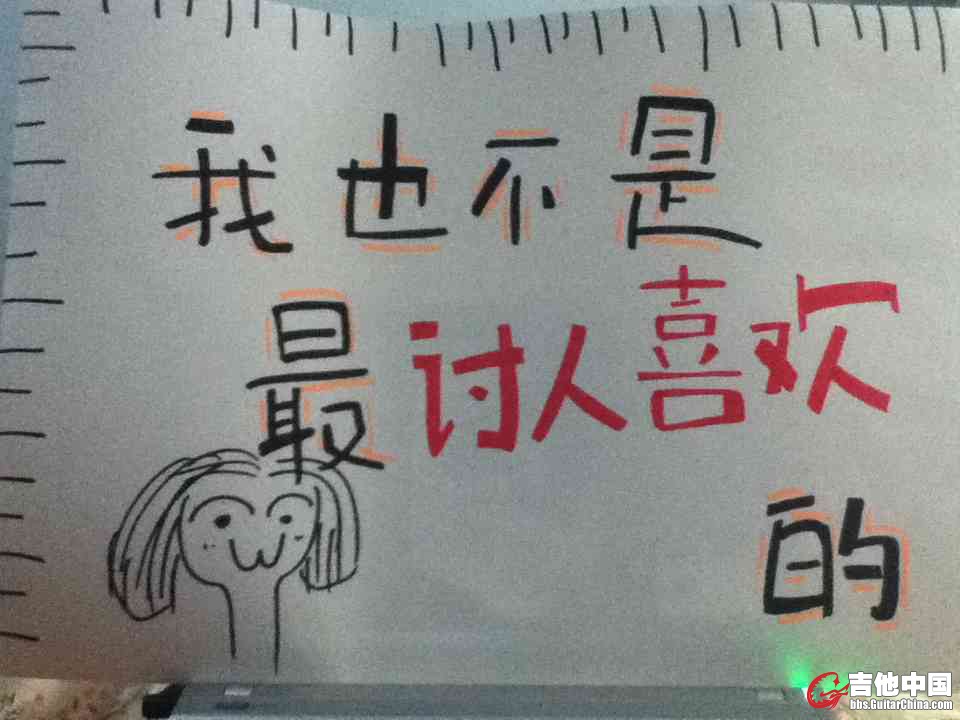 我也不是
最讨人喜欢
的
吉他中国
bbs.GuitarChina.com